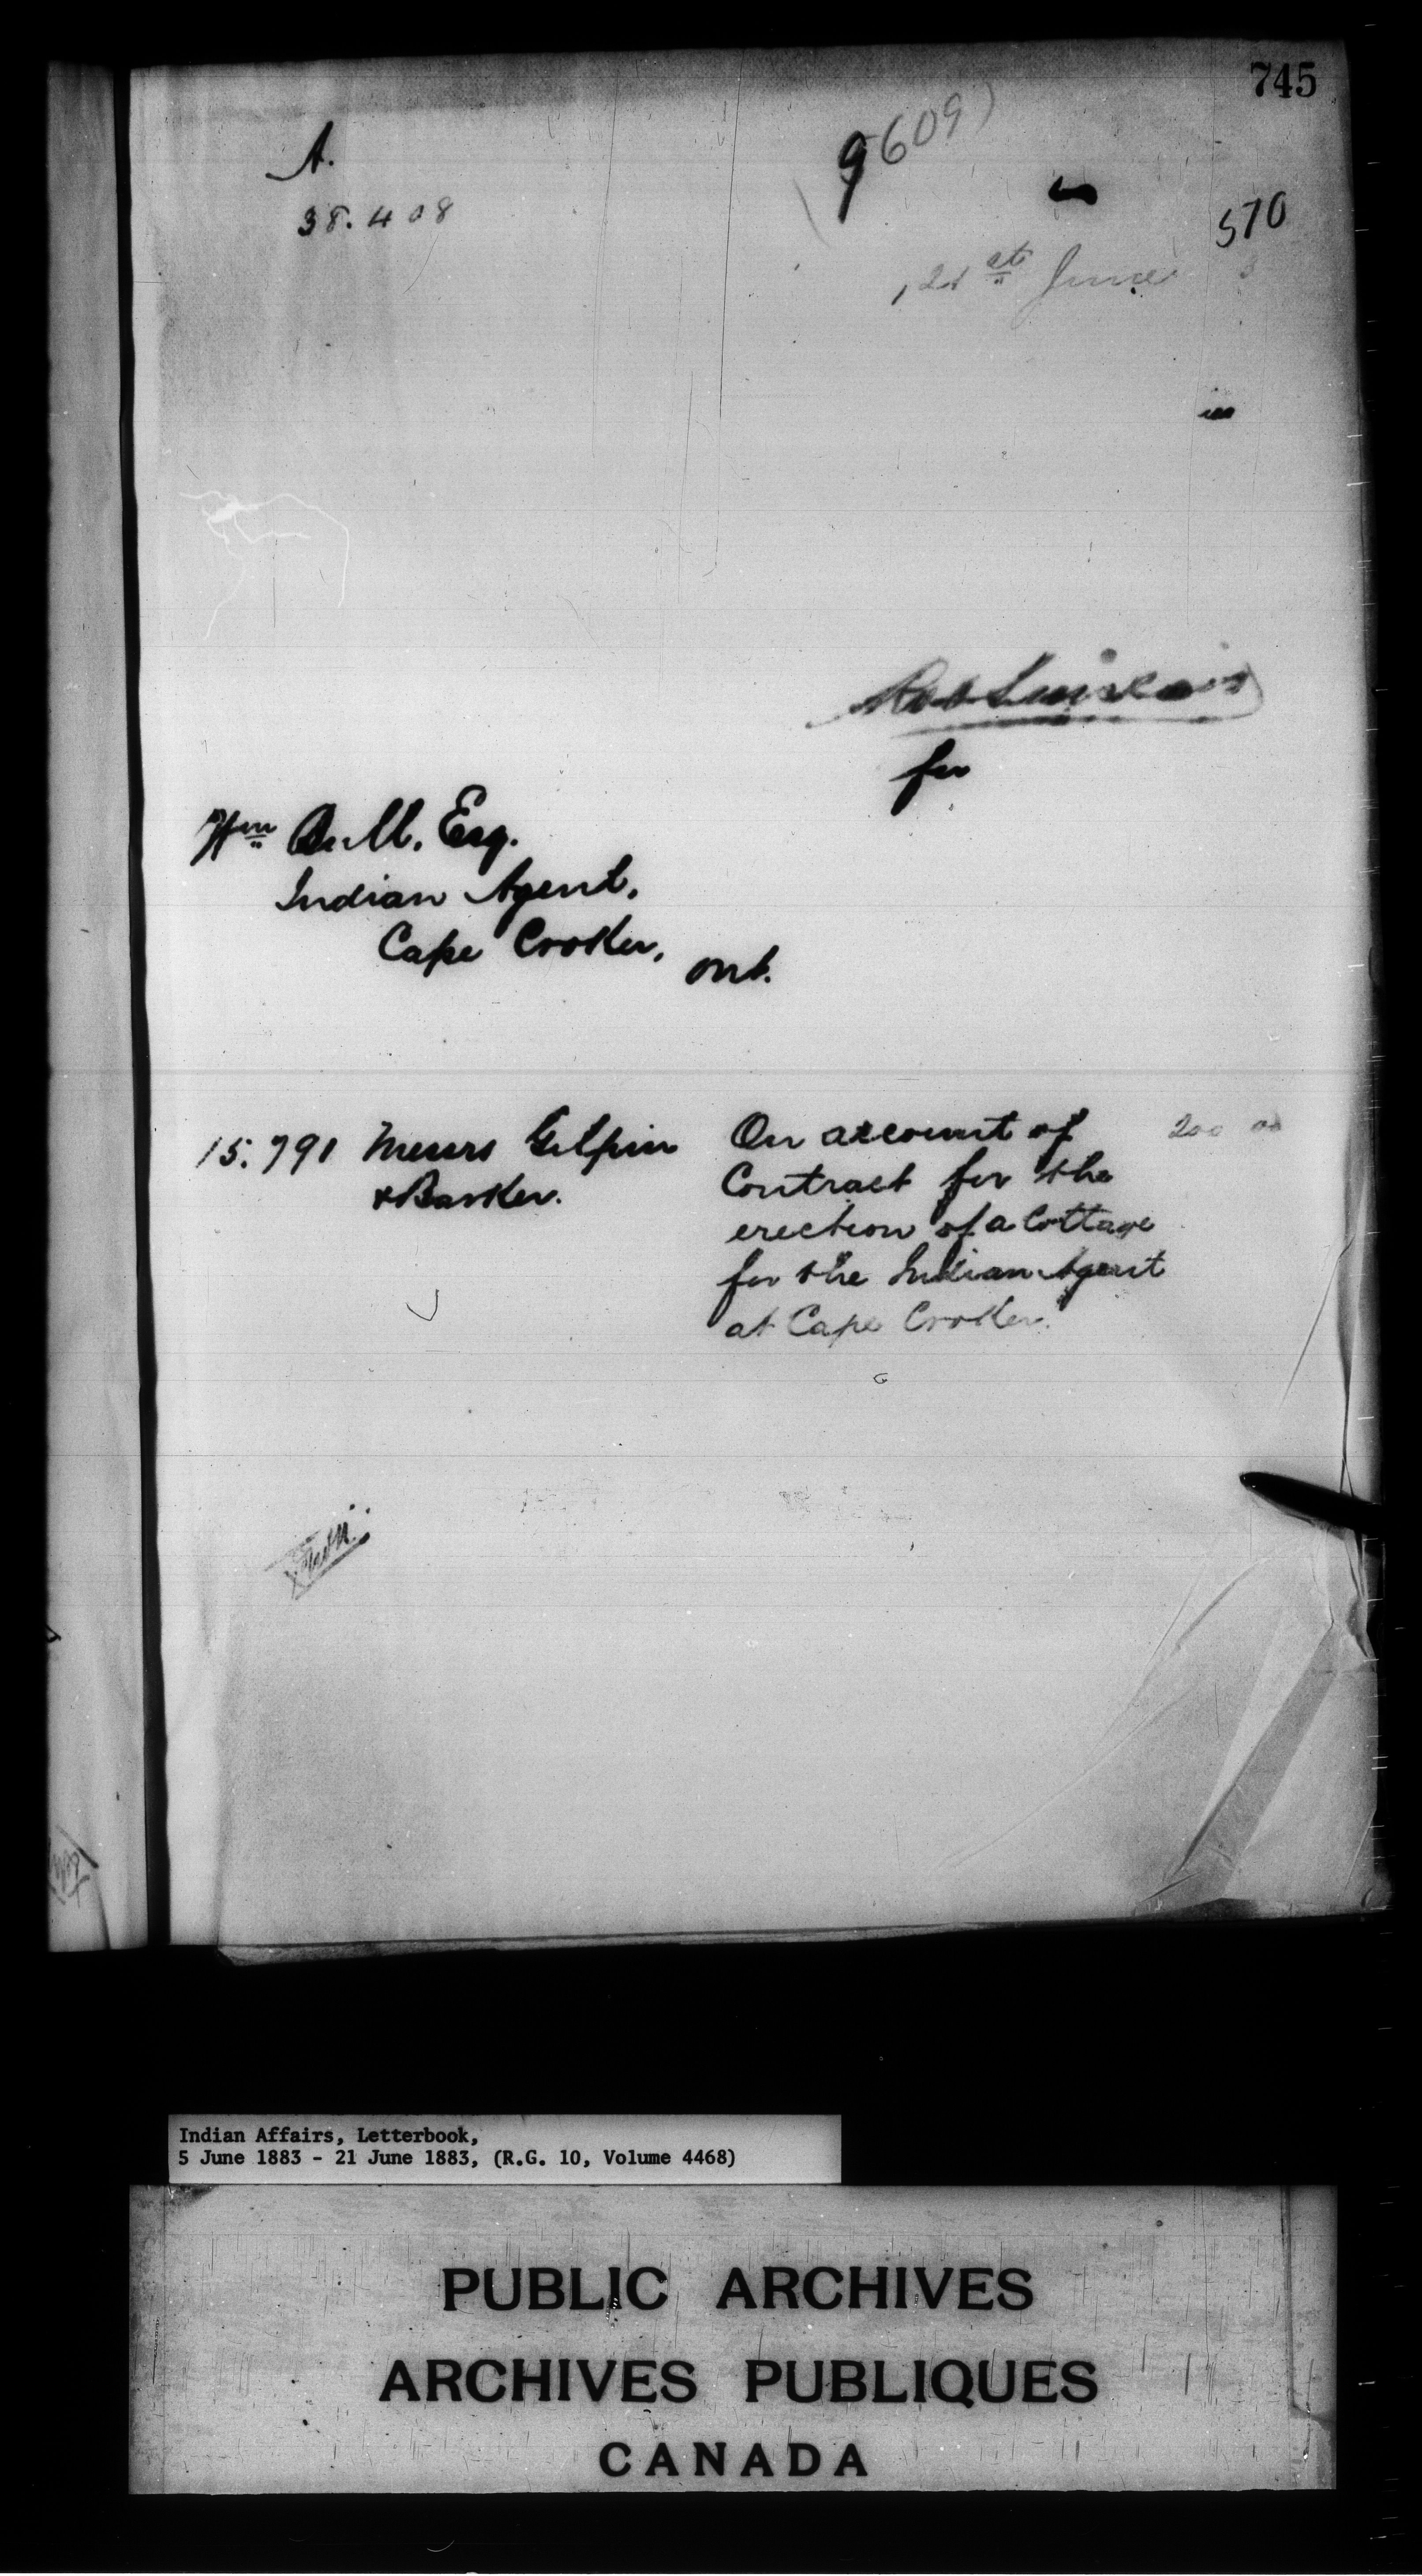 745
A.
38.408
9609)
570
21st June 3
for
Wm Bull, Esq.
Indian Agent,
Cape Croker,
Ont.
15.791 Messrs Gilpin
& Barker.
On account of
Contract for the
erection of a Cottage
for the Indian Agent
at Cape Croker.
200 00
Indian Affairs, Letterbook,
5 June 1883 - 21 June 1883, (R.G. 10, Volume 4468)
PUBLIC ARCHIVES
ARCHIVES PUBLIQUES
CANADA